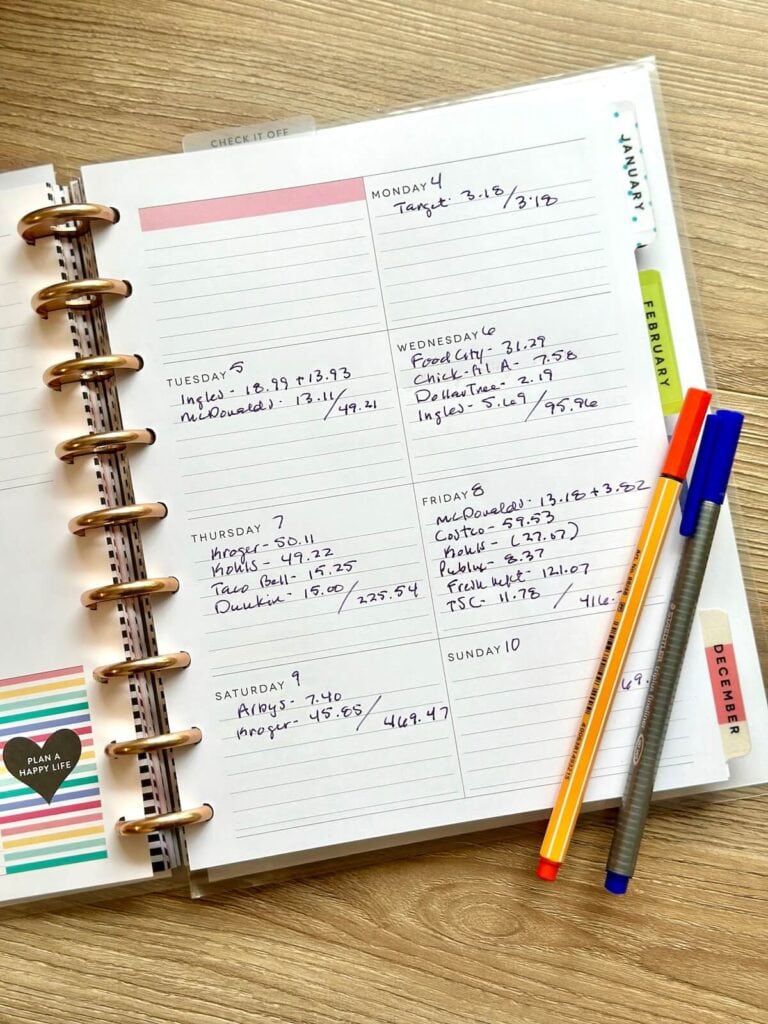 CHECK IT OFF
MONDAY 4
Target - 3.18 / 3.18
TUESDAY 5
Ingles - 18.99 + 13.93
McDonalds - 13.11 / 49.21
WEDNESDAY 6
Food City - 31.29
Chick-fil A - 7.58
Dollar Tree - 2.19
Ingles - 5.69 / 95.96
THURSDAY 7
Kroger - 50.11
Kohls - 49.22
Taco Bell - 15.25
Dunkin - 15.00 / 225.54
FRIDAY 8
McDonalds - 13.18 + 3.82
Costco - 59.53
Kohls - (27.07)
Publix - 8.37
Fresh Mkt - 121.07
TSC - 11.78 / 416.
SATURDAY 9
Arbys - 7.40
Kroger - 45.85 / 469.47
SUNDAY 10
69.
JANUARY
FEBRUARY
DECEMBER
PLAN A
HAPPY LIFE